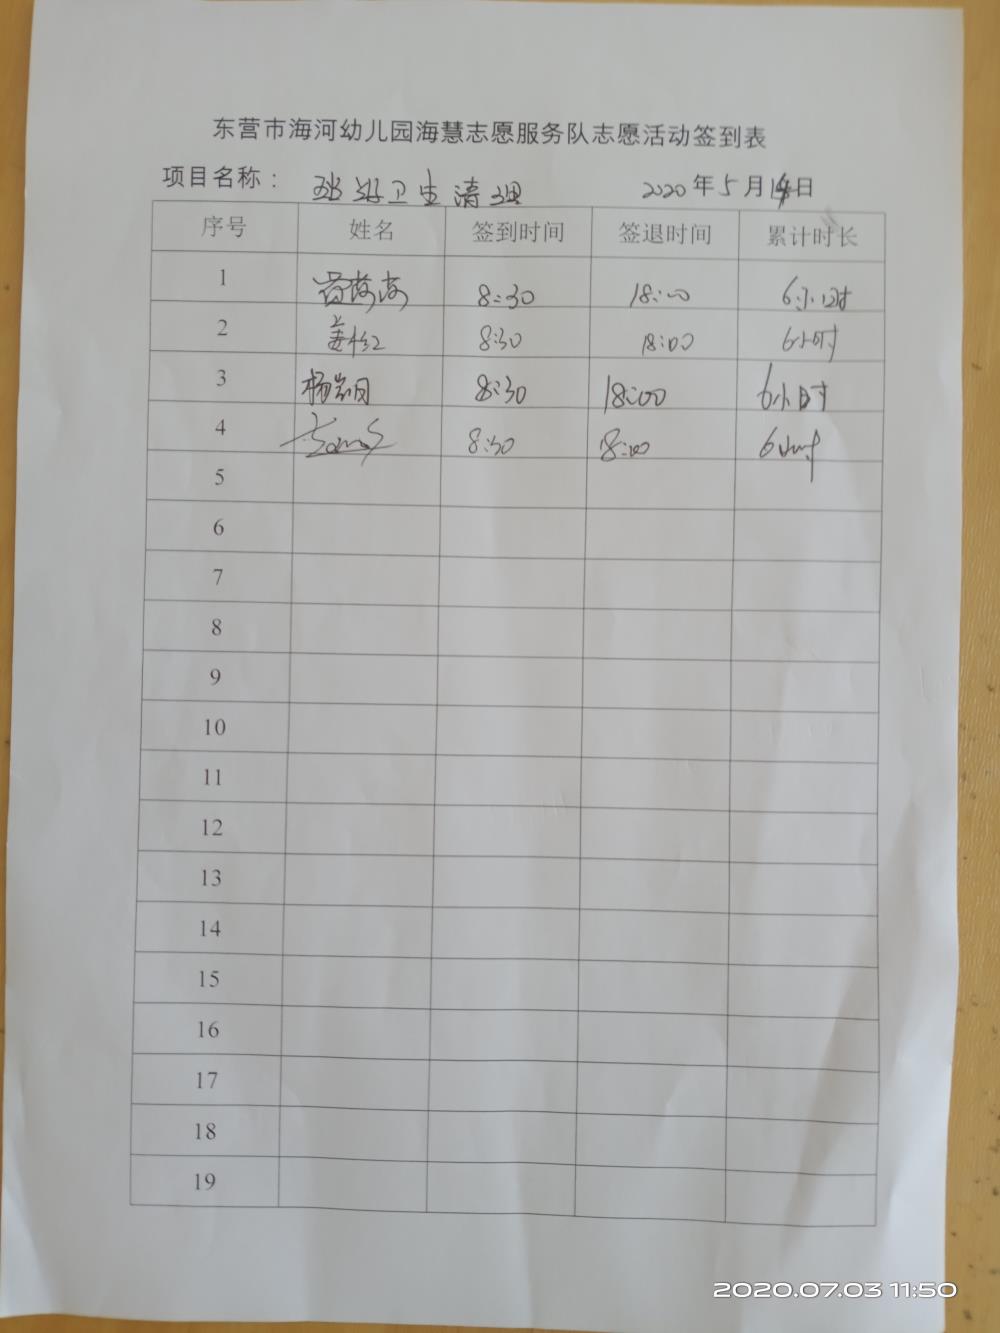 东营市海河幼儿园海慧志愿服务队志愿活动签到表
项目名称： 班级卫生清理 2020年5月14日
序号 姓名 签到时间 签退时间 累计时长
1 8:30 18:00 6小时
2 姜红 8:30 18:00 6小时
3 杨 8:30 18:00 6小时
4 8:30 18:00 6小时
5
6
7
8
9
10
11
12
13
14
15
16
17
18
19
2020.07.03 11:50